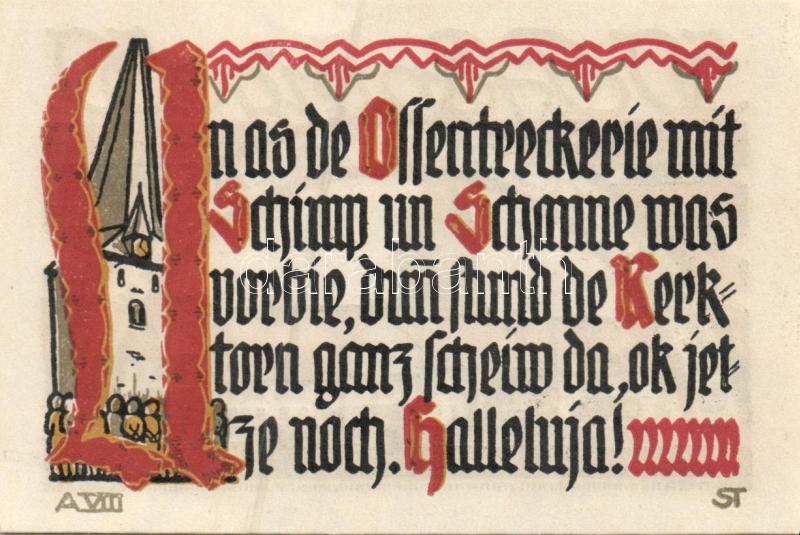 Un as de Ossentreckerie mit
Schimp un Schanne was
vorbie, dunn stund de Kerk=
torn ganz scheiw da, ok jet-
ze noch. Halleluja!
A VIII
ST
darabanth